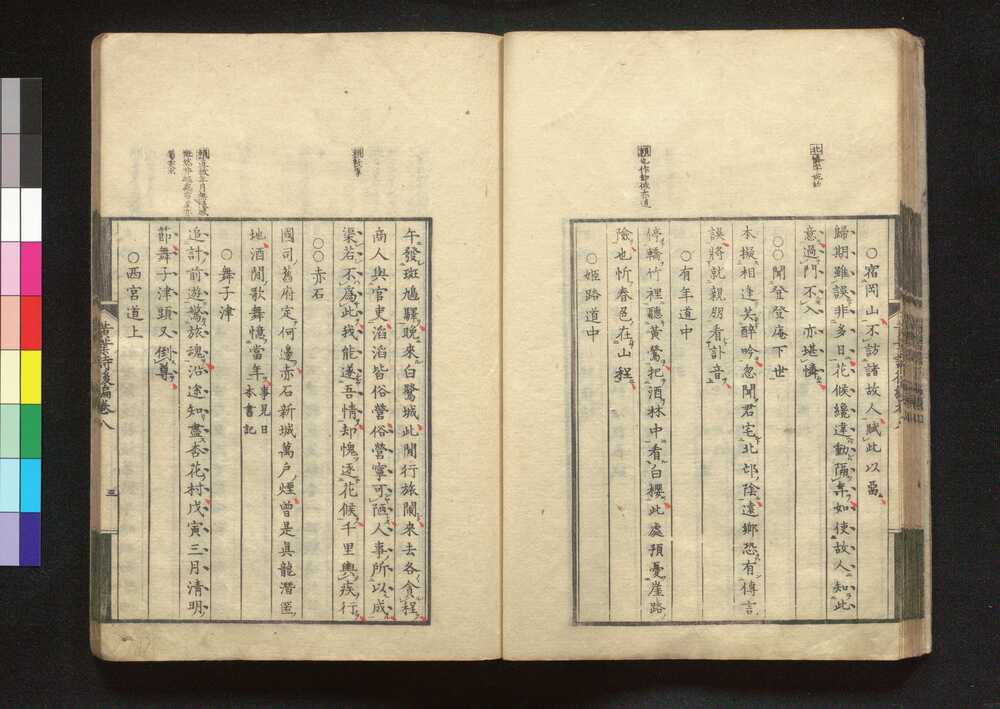 ○宿岡山不訪諸故人賦此以㽞
歸期雖謾非多日花候纔違動隔年如使故人知此
意過門不入亦堪憐
○○聞登登庵下世
本擬相逢笑醉吟忽聞君宅北邙陰遠鄉恐有傳言
誤將就親朋看訃音
○有年道中
停轎竹裡聽黃鶯把酒林中看白櫻此處預憂崖路
險也忻春邑在山程
○姬路道中
午發斑鳩驛晚來白鷺城此閒行旅闐來去各貪程
商人與官吏滔滔皆俗營俗營寧可陋人事所以成
渠若不為此我能遂吾情却愧逐花候千里輿疾行
○○赤石
國司舊府定何邊赤石新城萬戶煙曾是真龍潛匿
地酒閒歌舞憶當年事見日本書記
○舞子津
追計前遊驚旅魂沿途知盡杏花村戊寅三月清明
節舞子津頭又倒尊
○西宮道上
黃葉夕陽村舍詩後編卷八
三